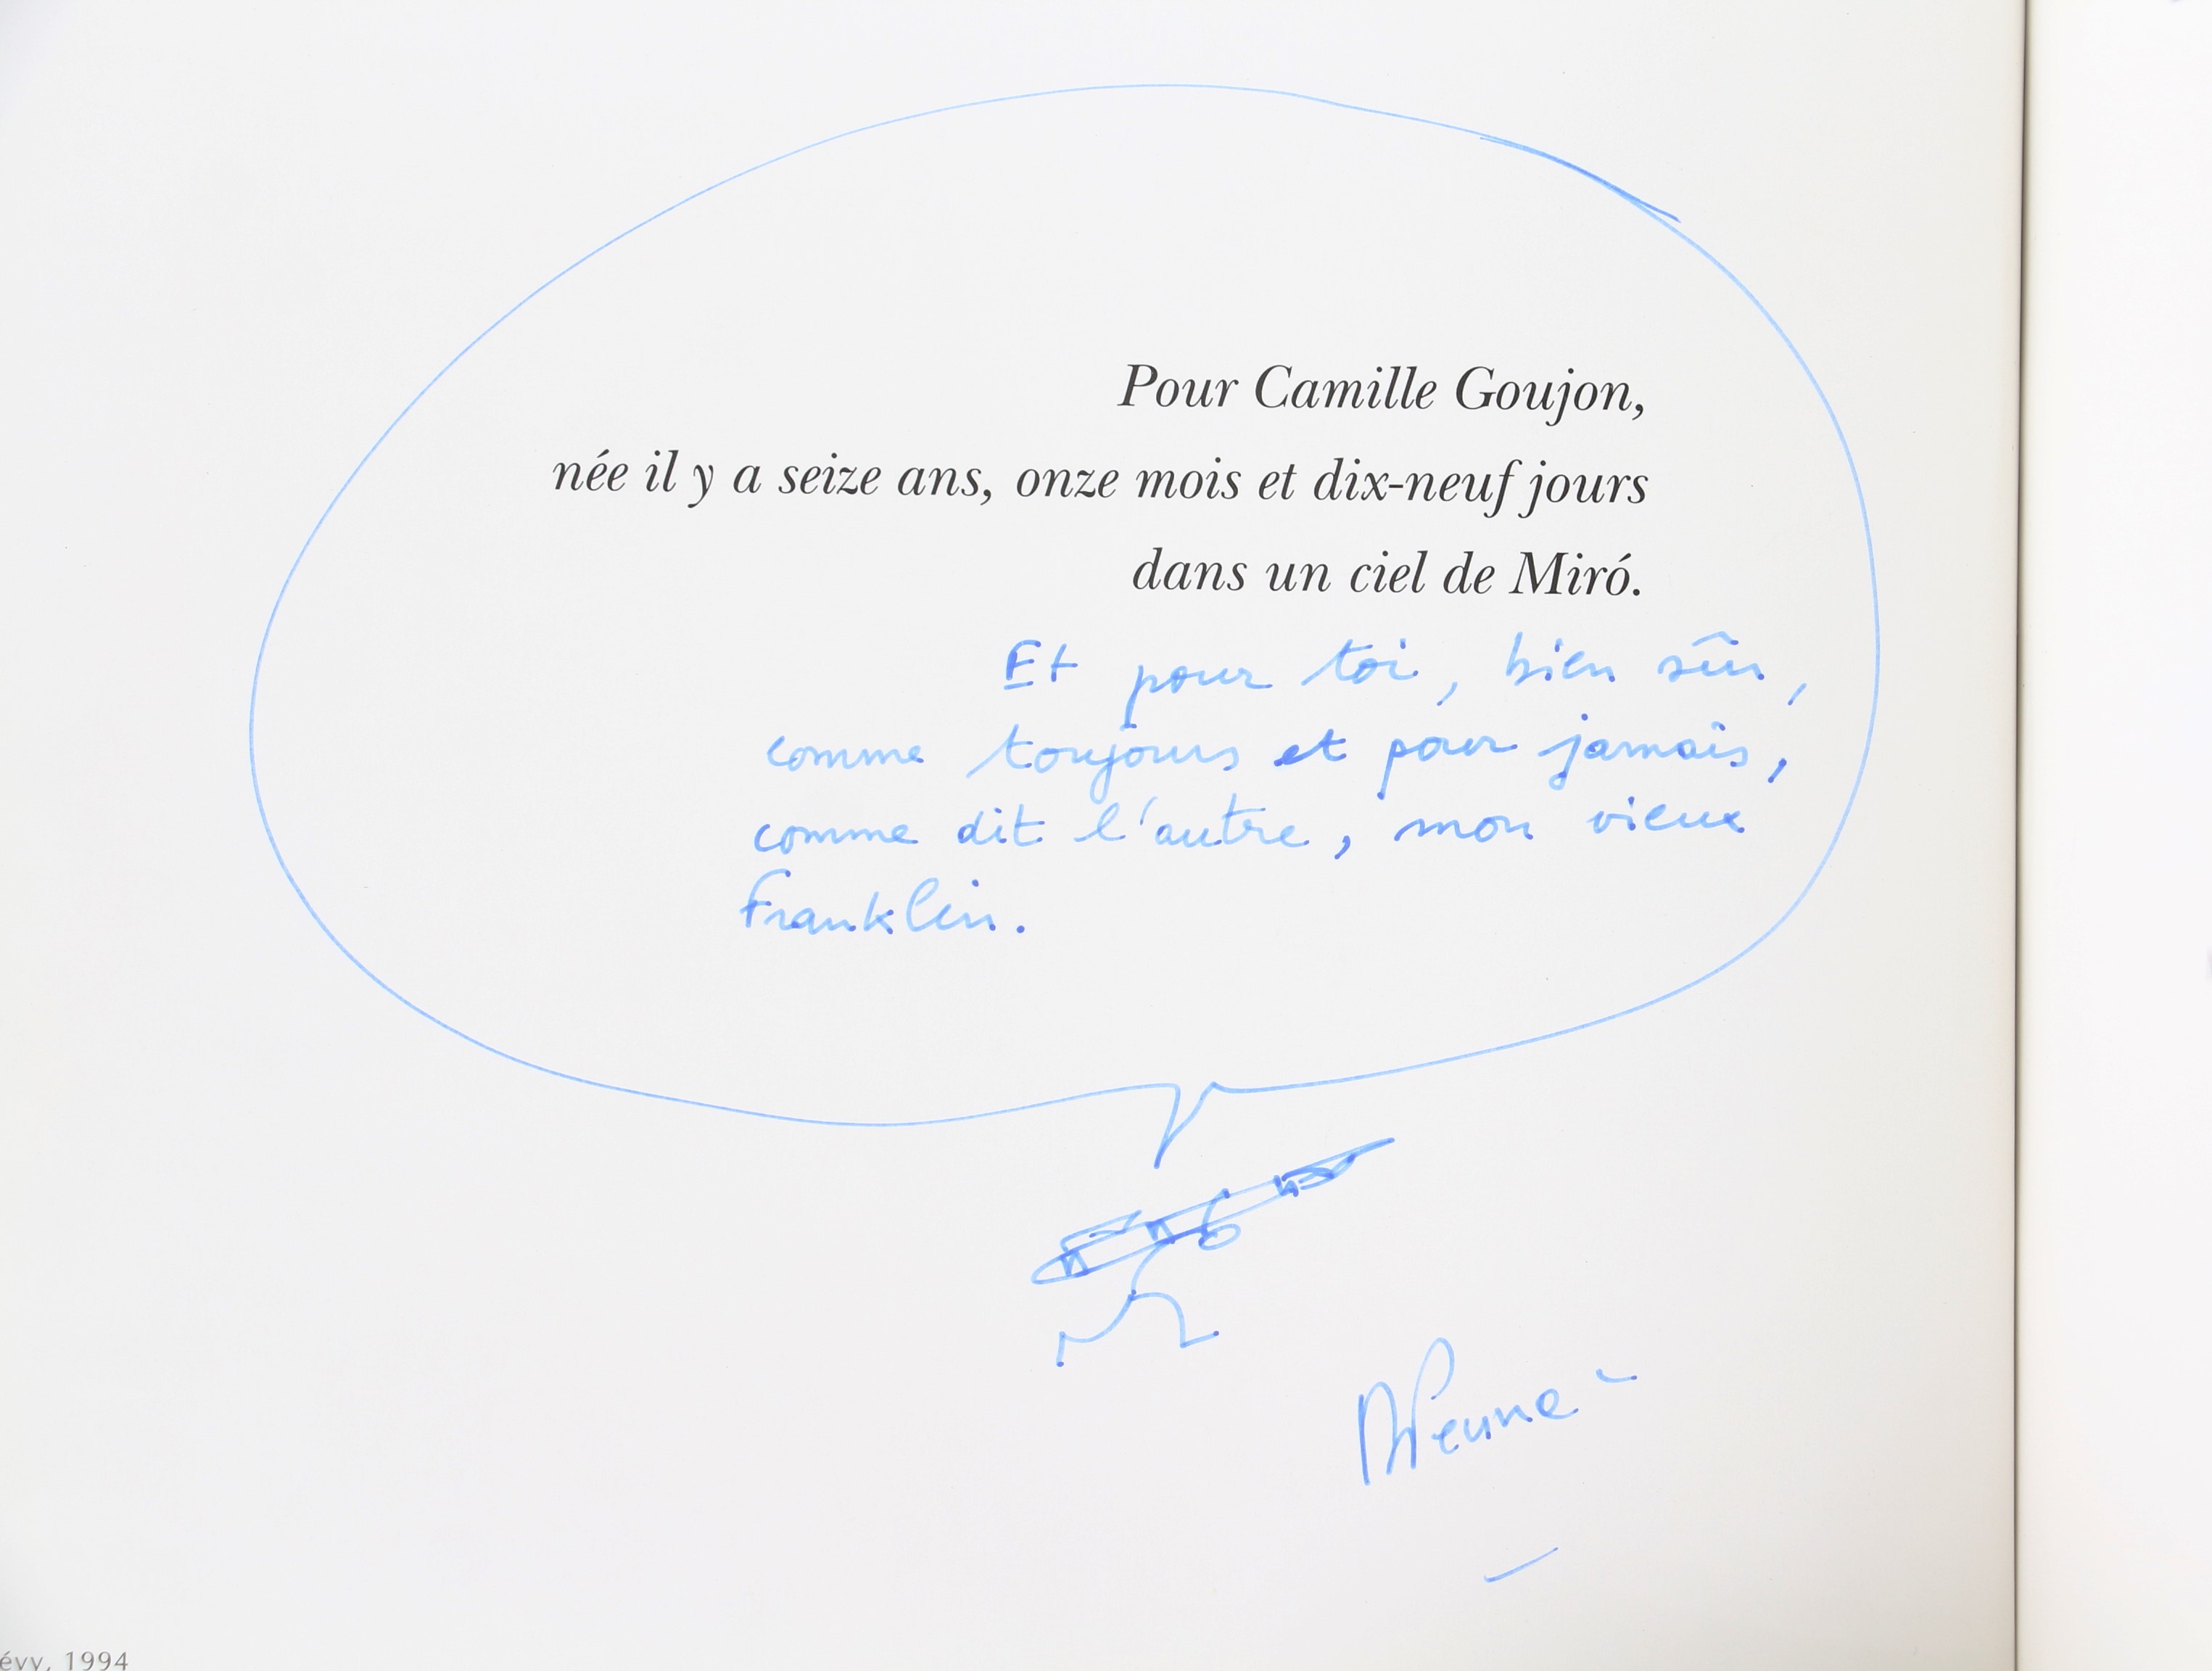 Pour Camille Goujon,
née il y a seize ans, onze mois et dix-neuf jours
dans un ciel de Miró.
Et pour toi, bien sûr,
comme toujours et pour jamais,
comme dit l'autre, mon vieux
Franklin.
évy, 1994